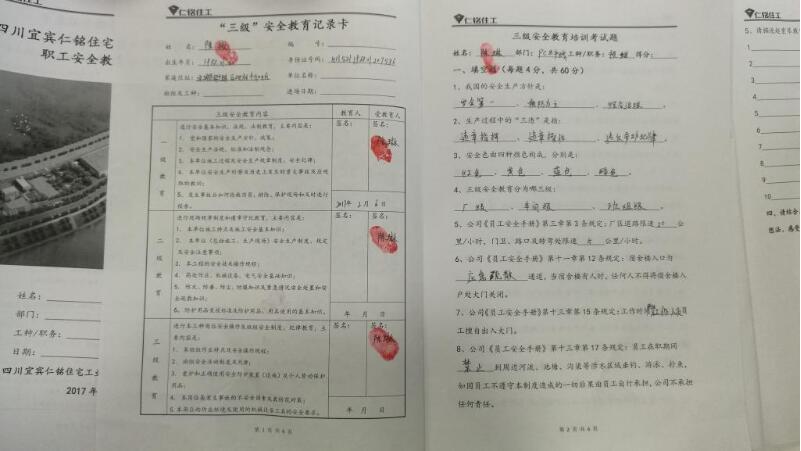 四川宜宾仁铭住宅
职工安全教
姓名：
部门：
工种/职务：
日期：
四川宜宾仁铭住宅工业
2017 年
仁铭住工
“三级”安全教育记录卡
姓 名：陈璇 编 号：
出生年月： 身份证号码：
家庭住址： 单位名称：
班组及工种： 进场日期：
三级安全教育内容 教育人 受教育人
一级教育
进行安全基本知识、法规、法制教育，主要内容是：
1、 党和国家的安全生产方针、政策；
2、 安全生产法规、标准和法制观念；
3、 本单位施工过程及安全生产规章制度，安全纪律；
4、 本单位安全生产形势及历史上发生的重大事故及应吸取的教训；
5、 发生事故后如何抢救伤员、排险、保护现场和及时进行报告。
签名： 签名：
陈璇
2017年 2月 6日
二级教育
进行现场规章制度和遵章守纪教育，主要内容是：
1、 本单位施工特点及施工安全基本知识；
2、 本单位（包括施工、生产现场）安全生产制度、规定及安全注意事项；
3、 本工种的安全技术操作规程；
4、 高处作业、机械设备、电气安全基础知识；
5、 防火、防毒、防尘、防爆知识及紧急情况安全处置和安全疏散知识；
6、 防护用品发放标准及防护用品、用具使用的基本知识。
签名： 签名：
陈璇
年 月 日
三级教育
进行本工种岗位安全操作及班组安全制度、纪律教育，主要内容是：
1、 本班组作业特点及安全操作规程；
2、 班组安全活动制度及纪律；
3、 爱护和正确使用安全防护装置（设施）及个人劳动保护用品；
4、 本岗位易发生事故的不安全因素及其防范对策；
5、本岗位的作业环境及使用的机械设备工具的安全要求。
签名： 签名：
陈璇
年 月 日
第 1 页 共 6 页
仁铭住工
三级安全教育培训考试题
姓名：陈璇 部门： 工种/职务： 得分：
一、填空题（每题 4 分，共 60 分）
1、我国的安全生产方针是：
安全第一 、 预防为主 、 综合治理 。
2、生产过程中的“三违”是指：
违章指挥 、 违章操作 、 违反劳动纪律 。
3、安全色由四种颜色构成，分别是：
红色 、 黄色 、 蓝色 、 绿色 。
4、三级安全教育分为哪三级：
厂级 、 车间级 、 班组级 。
5、公司《员工安全手册》第三章第 3 条规定：厂区道路限速 公
里/小时，门卫、路口及转弯处限速 5 公里/小时。
6、公司《员工安全手册》第十一章第 12 条规定：宿舍楼入口为
应急疏散 通道，当宿舍楼有人时，任何人不得将宿舍楼入
户处大门关闭。
7、公司《员工安全手册》第十三章第 15 条规定：工作时 员
工擅自出入大门。
8、公司《员工安全手册》第十三章第 17 条规定：员工在职期间
禁止 到周边河流、池塘、沟渠等涉水区域垂钓、游泳、捞鱼，
如因员工不遵守本制度造成的一切后果由员工自行承担，公司不承担
任何责任。
第 2 页 共 6 页